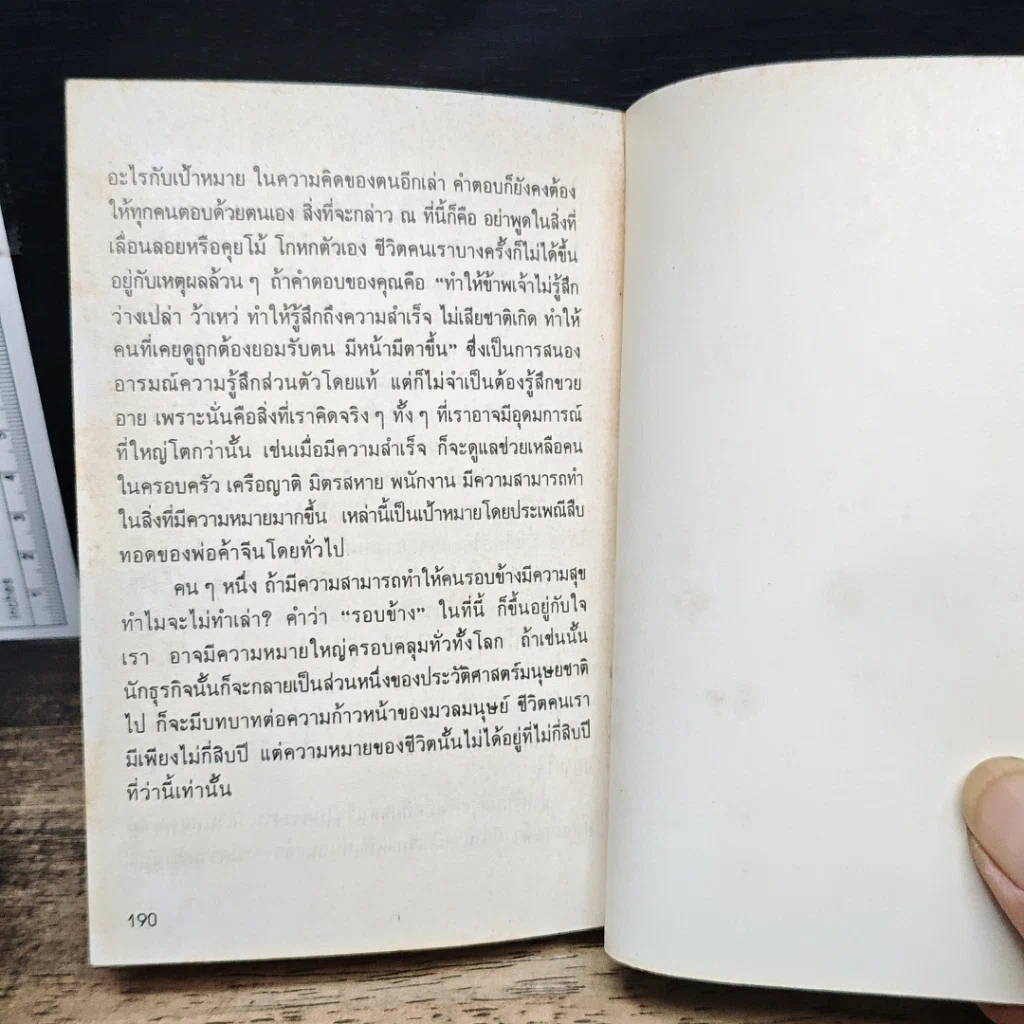 อะไรกับเป้าหมาย ในความคิดของตนอีกเล่า คำตอบก็ยังคงต้อง
ให้ทุกคนตอบด้วยตนเอง สิ่งที่จะกล่าว ณ ที่นี้ก็คือ อย่าพูดในสิ่งที่
เลื่อนลอยหรือคุยโม้ โกหกตัวเอง ชีวิตคนเราบางครั้งก็ไม่ได้ขึ้น
อยู่กับเหตุผลล้วน ๆ ถ้าคำตอบของคุณคือ “ทำให้ข้าพเจ้าไม่รู้สึก
ว่างเปล่า ว้าเหว่ ทำให้รู้สึกถึงความสำเร็จ ไม่เสียชาติเกิด ทำให้
คนที่เคยดูถูกต้องยอมรับตน มีหน้ามีตาขึ้น” ซึ่งเป็นการสนอง
อารมณ์ความรู้สึกส่วนตัวโดยแท้ แต่ก็ไม่จำเป็นต้องรู้สึกขวย
อาย เพราะนั่นคือสิ่งที่เราคิดจริง ๆ ทั้ง ๆ ที่เราอาจมีอุดมการณ์
ที่ใหญ่โตกว่านั้น เช่นเมื่อมีความสำเร็จ ก็จะดูแลช่วยเหลือคน
ในครอบครัว เครือญาติ มิตรสหาย พนักงาน มีความสามารถทำ
ในสิ่งที่มีความหมายมากขึ้น เหล่านี้เป็นเป้าหมายโดยประเพณีสืบ
ทอดของพ่อค้าจีนโดยทั่วไป
คน ๆ หนึ่ง ถ้ามีความสามารถทำให้คนรอบข้างมีความสุข
ทำไมจะไม่ทำเล่า? คำว่า “รอบข้าง” ในที่นี้ ก็ขึ้นอยู่กับใจ
เรา อาจมีความหมายใหญ่ครอบคลุมทั่วทั้งโลก ถ้าเช่นนั้น
นักธุรกิจนั้นก็จะกลายเป็นส่วนหนึ่งของประวัติศาสตร์มนุษยชาติ
ไป ก็จะมีบทบาทต่อความก้าวหน้าของมวลมนุษย์ ชีวิตคนเรา
มีเพียงไม่กี่สิบปี แต่ความหมายของชีวิตนั้นไม่ได้อยู่ที่ไม่กี่สิบปี
ที่ว่านี้เท่านั้น
190
4
3
2
inches